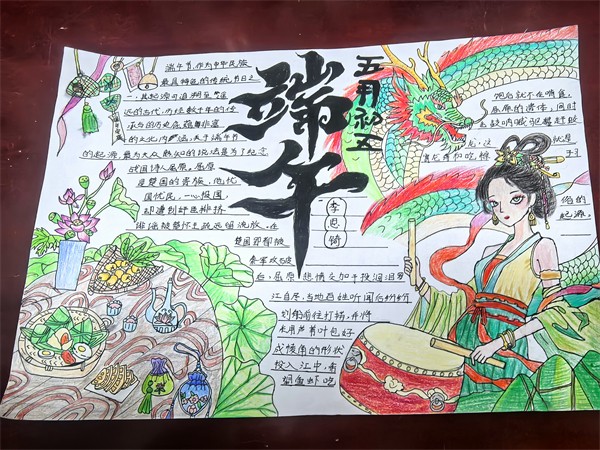 端午
五月初五
李思锜
端午节,作为中华民族
最具特色的传统节日之
一,其起源可追溯至遥
远的古代,历经数千年的传
承与
的文化内涵,关于端午节
的起源,最为大众熟知的说法是为了纪念
战国诗人屈原。屈原
是楚国的贵族,他忧
国忧民,一心报国,
却遭到奸臣排挤
诽谤被楚怀王疏远组流放,在
楚国郢都被
秦军攻破
后,屈原悲愤交加于投汨罗
江自尽,当地百姓听闻后纷纷
划船前往打捞,并将
米用芦苇叶包好
成棱角的形状
投入江中,希
望鱼虾吃
饱后就不在啃食
屈原的遗体,同时
击鼓呐喊驱赶
龙,这就是
赛龙舟和吃粽子
俗的
起源。